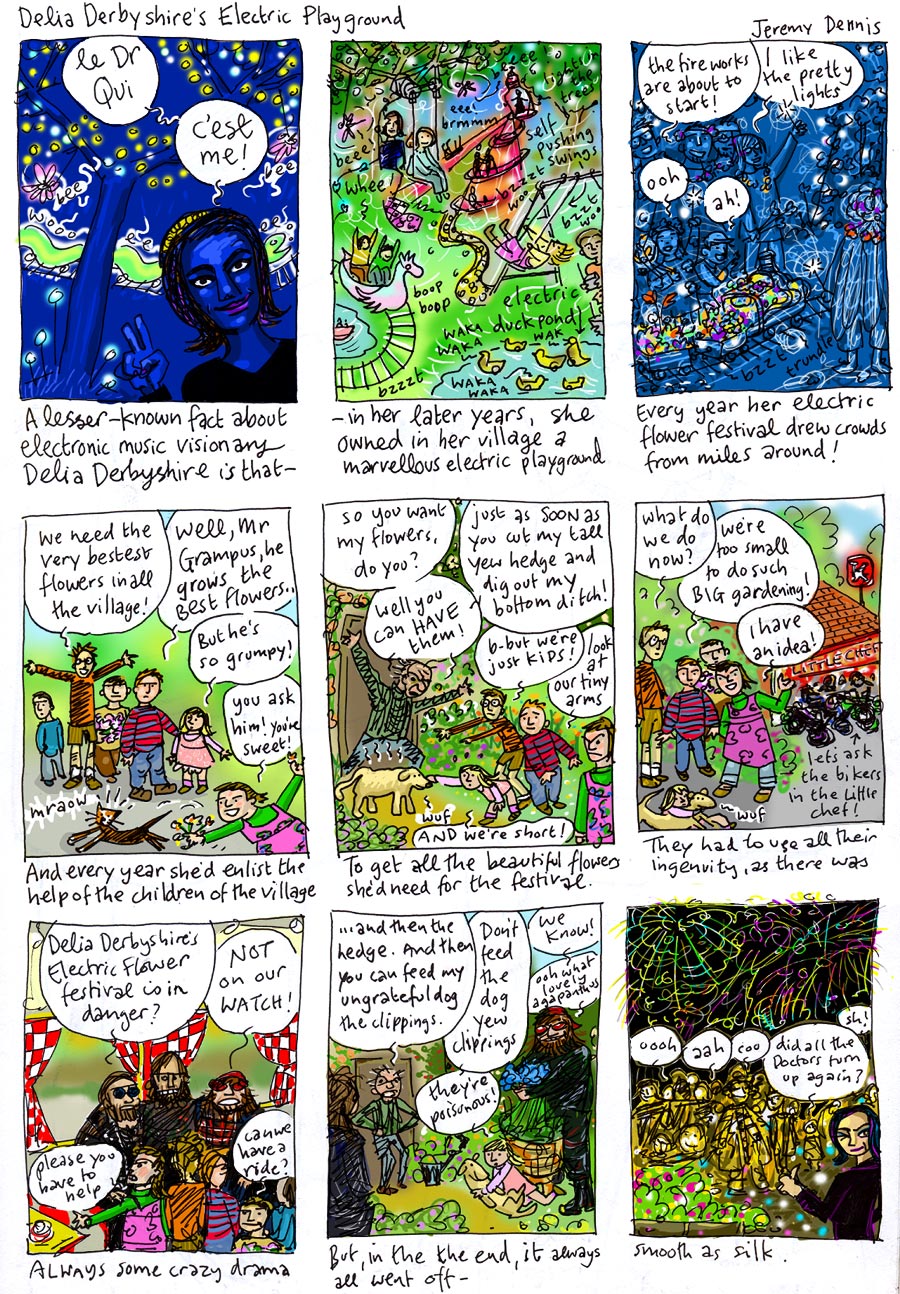 Delia Derbyshire's Electric Playground
Jeremy Dennis
le Dr
Qui
c'est
me!
bee
bee
woo
bee
ee
A lesser-known fact about
electronic music visionary
Delia Derbyshire is that-
beeee
eeee
brmmm
lights
in the
trees
self
pushing
swings
beee!
whee
bzzzt
boop
boop
electric
duck pond!
WAKA
WAKA
WAK
WAKA
WAKA
bzzzt
-in her later years, she
owned in her village a
marvellous electric playground
the fireworks
are about to
start!
I like
the pretty
lights
ooh
ah!
bzzt
trundle
Every year her electric
flower festival drew crowds
from miles around!
we need the
very bestest
flowers in all
the village!
well, Mr
Grampus, he
grows the
Best flowers..
But he's
so grumpy!
you ask
him! you're
sweet!
mraow
And every year she'd enlist the
help of the children of the village
so you want
my flowers,
do you?
well you
can HAVE
them!
just as SOON as
you cut my tall
yew hedge and
dig out my
bottom ditch!
b-but we're
just KIDS!
look
at
our tiny
arms
wuf
AND we're short!
To get all the beautiful flowers
she'd need for the festival.
what do
we do
now?
we're
too small
to do such
BIG gardening!
I have
an idea!
LITTLE CHEF
lets ask
the bikers
in the Little
chef!
wuf
They had to use all their
ingenuity, as there was
Delia Derbyshire's
Electric Flower
festival is in
danger?
NOT
on our
WATCH!
please you
have to
help!
can we
have a
ride?
ALWAYS some crazy drama
...and then the
hedge. And then
you can feed my
ungrateful dog
the clippings.
Don't
feed
the
dog
yew
clippings
they're
poisonous!
we
know!
ooh what
lovely
agapanthus
But, in the the end, it always
all went off-
oooh
aah
coo
did all the
Doctors turn
up again?
sh!
smooth as silk.